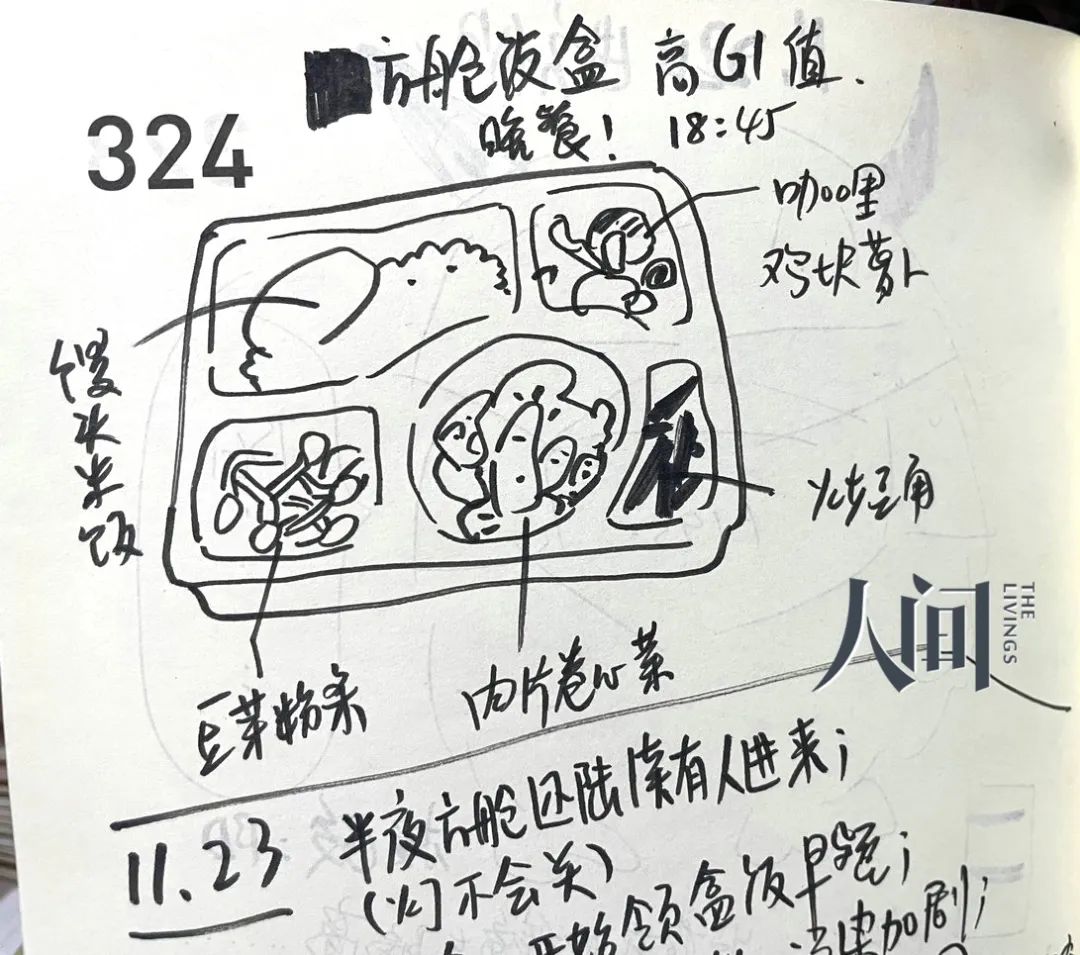 方舱饭盒 高GI值.
324
晚餐! 18:45
咖喱
鸡块萝卜
馒头米饭
炒豆角
人间
THE LIVINGS
豆芽粉条
肉片卷心菜
11.23
半夜方舱还陆续有人进来;
(灯不会关)
开始领盒饭早餐;
加剧;